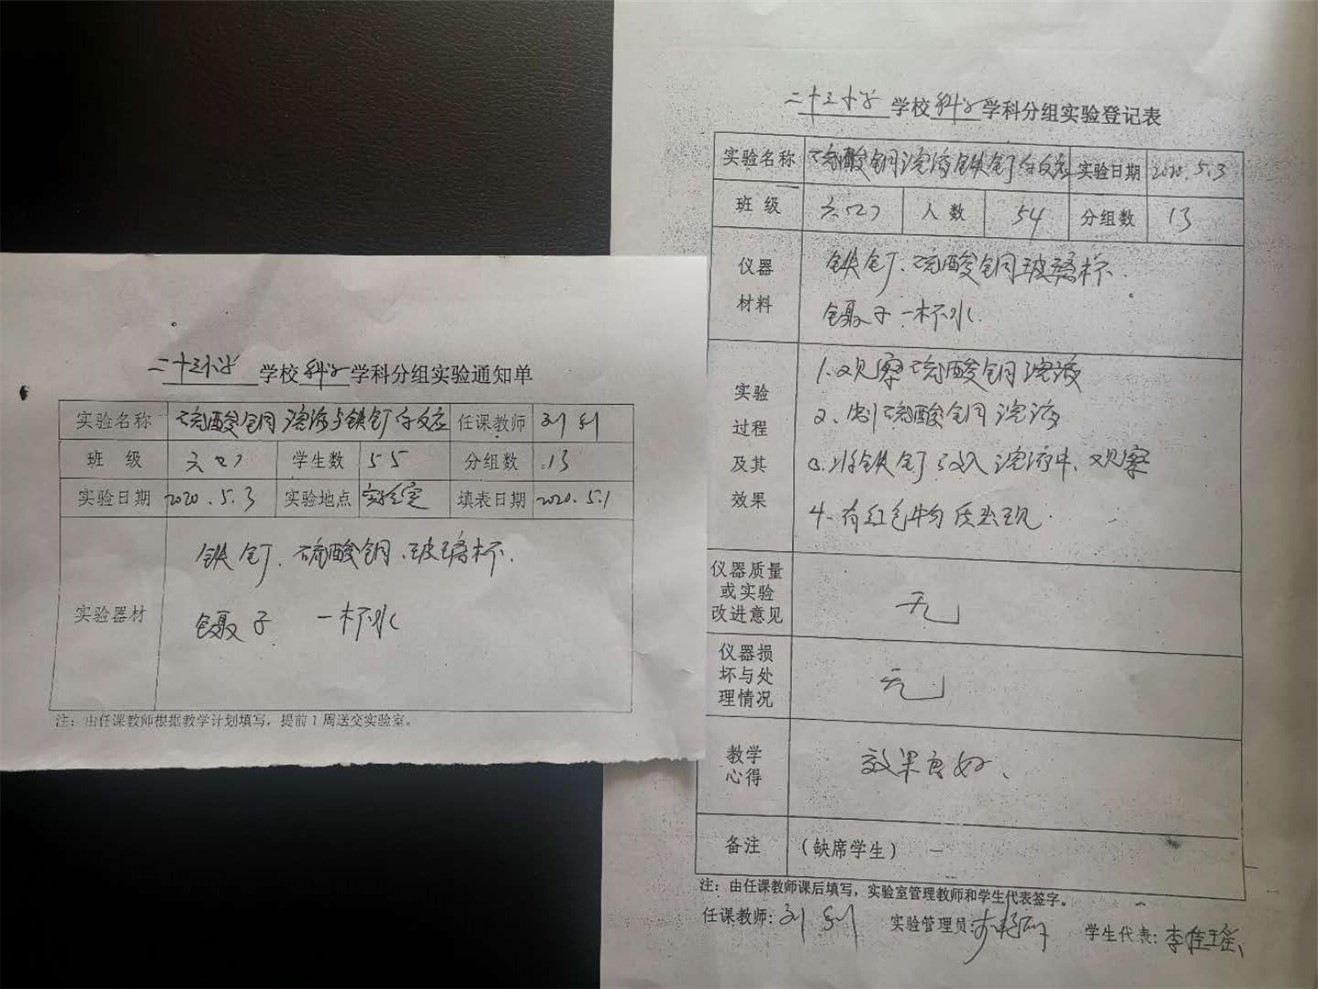 二十三小学 学校 科学 学科分组实验通知单
实验名称 硫酸铜溶液与铁钉的反应 任课教师 刘
班级 六(2) 学生数 55 分组数 13
实验日期 2020.5.3 实验地点 实验室 填表日期 2020.5.1
实验器材
铁钉、硫酸铜、玻璃杯、
镊子 一杯水
注：由任课教师根据教学计划填写，提前1周送交实验室。
二十三小学 学校 科学 学科分组实验登记表
实验名称 硫酸铜溶液铁钉的反应 实验日期 2020.5.3
班级 六(2) 人数 54 分组数 13
仪器材料
铁钉、硫酸铜玻璃杯、
镊子 一杯水
实验过程及其效果
1、观察硫酸铜溶液
2、制硫酸铜溶液
3、将铁钉放入溶液中、观察
4、有红色物质出现
仪器质量或实验改进意见 无
仪器损坏与处理情况 无
教学心得 效果良好、
备注 (缺席学生) 一
注：由任课教师课后填写，实验室管理教师和学生代表签字。
任课教师: 刘 实验管理员: 学生代表: 李佳瑶